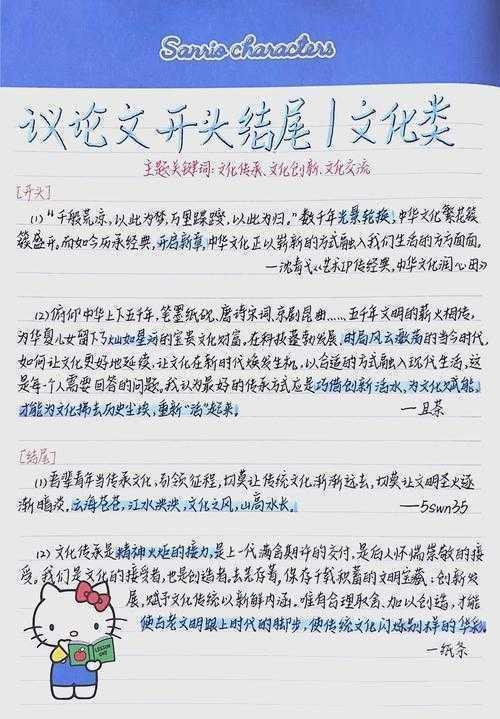 Sanrio characters
议论文开头结尾|文化类
主题关键词:文化传承、文化创新、文化交流
[开头]
(1)“千般荒凉,以此为梦,万里蹀躞,以此为归。”数千年光景轮换,中华文化繁花簇
簇盛开。而如今历承经典,开启新章,中华文化正以崭新的方式融入我们生活的方方面面。
—沈青弋《艺术IP传经典,中华文化润心田》
(2)俯仰中华上下五千年,笔墨纸砚、唐诗宋词、京剧昆曲……五千年文明的薪火相传,
为华夏儿女留下了灿如星河的宝贵文化财富。在科技蓬勃发展,时局风云激荡的当今时代,
如何让文化更好地延续,让文化在新时代焕发生机,以合适的方式融入现代生活,这
是每个人需要回答的问题。我认为最好的传承方式应是巧借创新活水,为文化赋能,
才能为文化拂去历史尘埃,重新“活”起来。 —且茶
[结尾]
(1)吾辈青年当传承文化,引领征程,切莫让传统文化渐渐远去,切莫让文明圣火逐
渐暗淡。云海苍苍,江水泱泱,文化之风,山高水长。 ——5swn35
(2)文化传承是精神火炬的接力,是上一代满含期许的交付,是后人怀揣崇敬的接
受。我们是文化的接受者,也是创造者,去芜存菁,保存千载积蓄的文明宝藏;创新发
展,赋予文化传统以新鲜内涵。唯有合理取舍、加以创造,才能
使古老文明跟上时代的脚步,使传统文化闪烁别样的华彩。
—纸条
LESSON
ONE